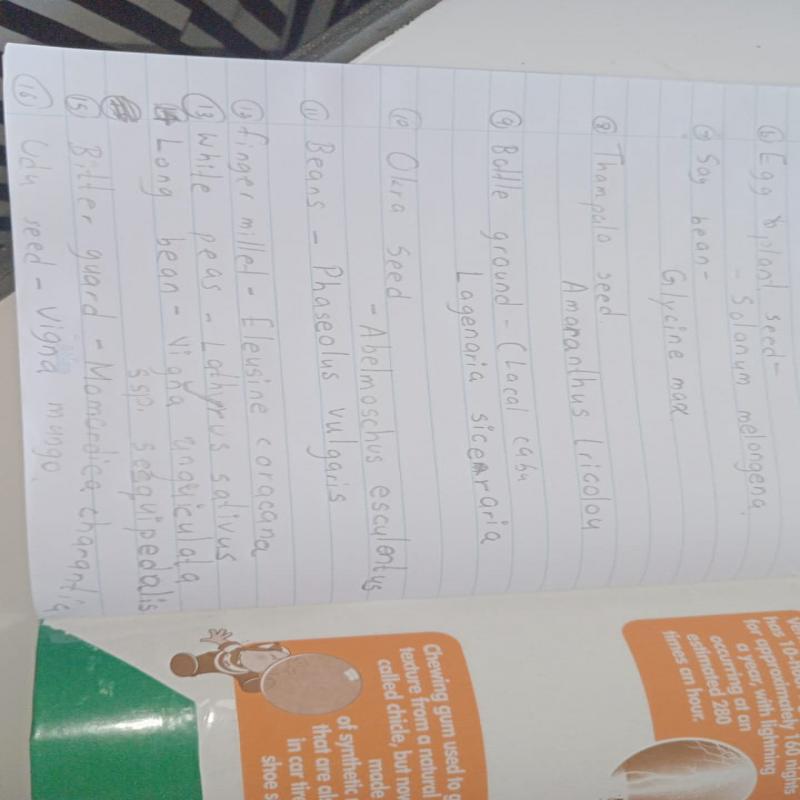 ⑥ Egg plant seed-
- Solanum melongena
⑦ Soy bean-
Glycine max
⑧ Thampala seed
Amaranthus tricolou
⑨ Bottle ground - (Local cabu
Lagenaria siceraria
⑩ Okra seed
- Abelmoschus esculentus
⑪ Beans - Phaseolus vulgaris
⑫ finger millet - Eleusine coracana
⑬ White peas - Lathyrus sativus
Long bean - Vigna unguiculata
ssp. sesquipedalis
⑮ Bitter guard - Momordica charantia
⑯ Udu seed - Vigna mungo.
has
for approximately 160 nights
a year, with lightning
occurring at an
estimated 280
times an hour.
Chewing gum used to
texture from a natural
called chicle, but now
made
of synthetic
that are
in car
shoe